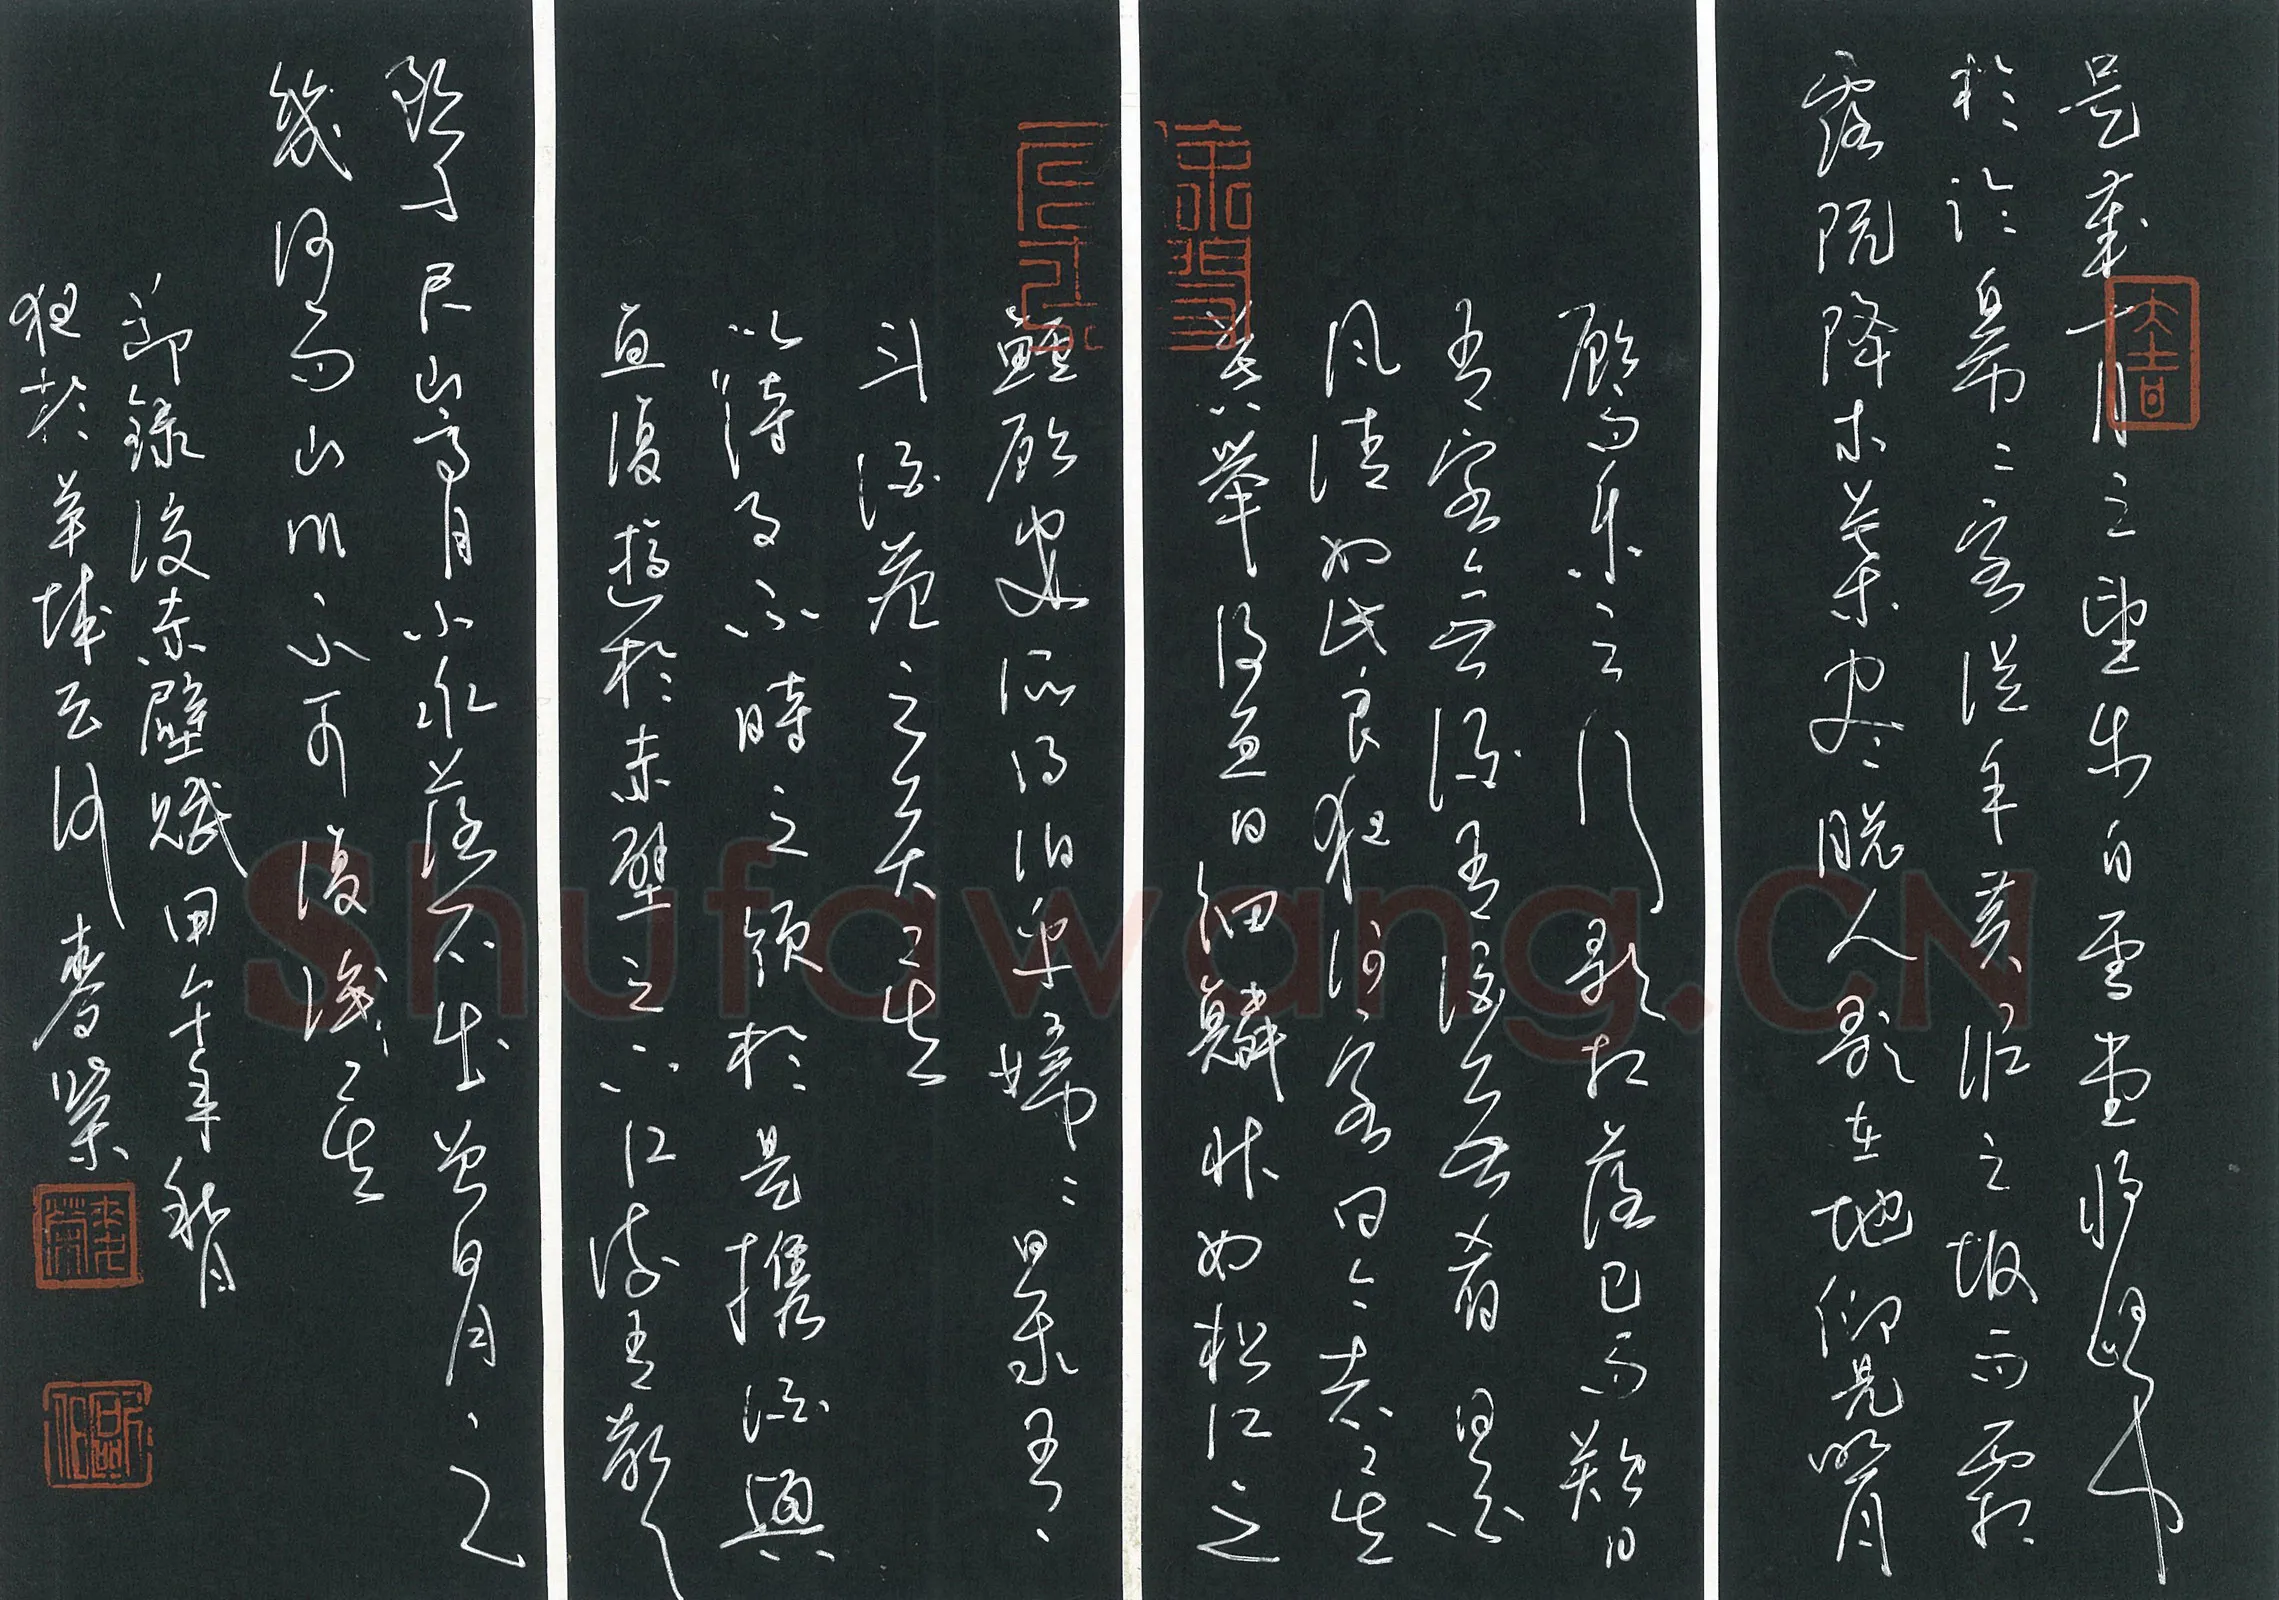 是歲十月之望步自雪堂將歸
於臨皋二客從黃泥之坂而霜
露既降木葉盡脫人影在地仰見明月
顧而樂之行歌相答已而歎曰
有客無酒有酒無肴月白
風清如此良夜何客曰今者
暮舉得魚口細鱗狀如松江之
鱸顧安所得酒乎婦曰我有
斗酒藏之久矣
以待子不時之須於是攜酒與
魚復遊於赤壁之下江流有聲
斷岸千尺山高月小水落石出曾日月之
幾何而山川不可復識矣
節錄後赤壁賦甲午年秋月
於羊城
大吉
Shufawang.CN